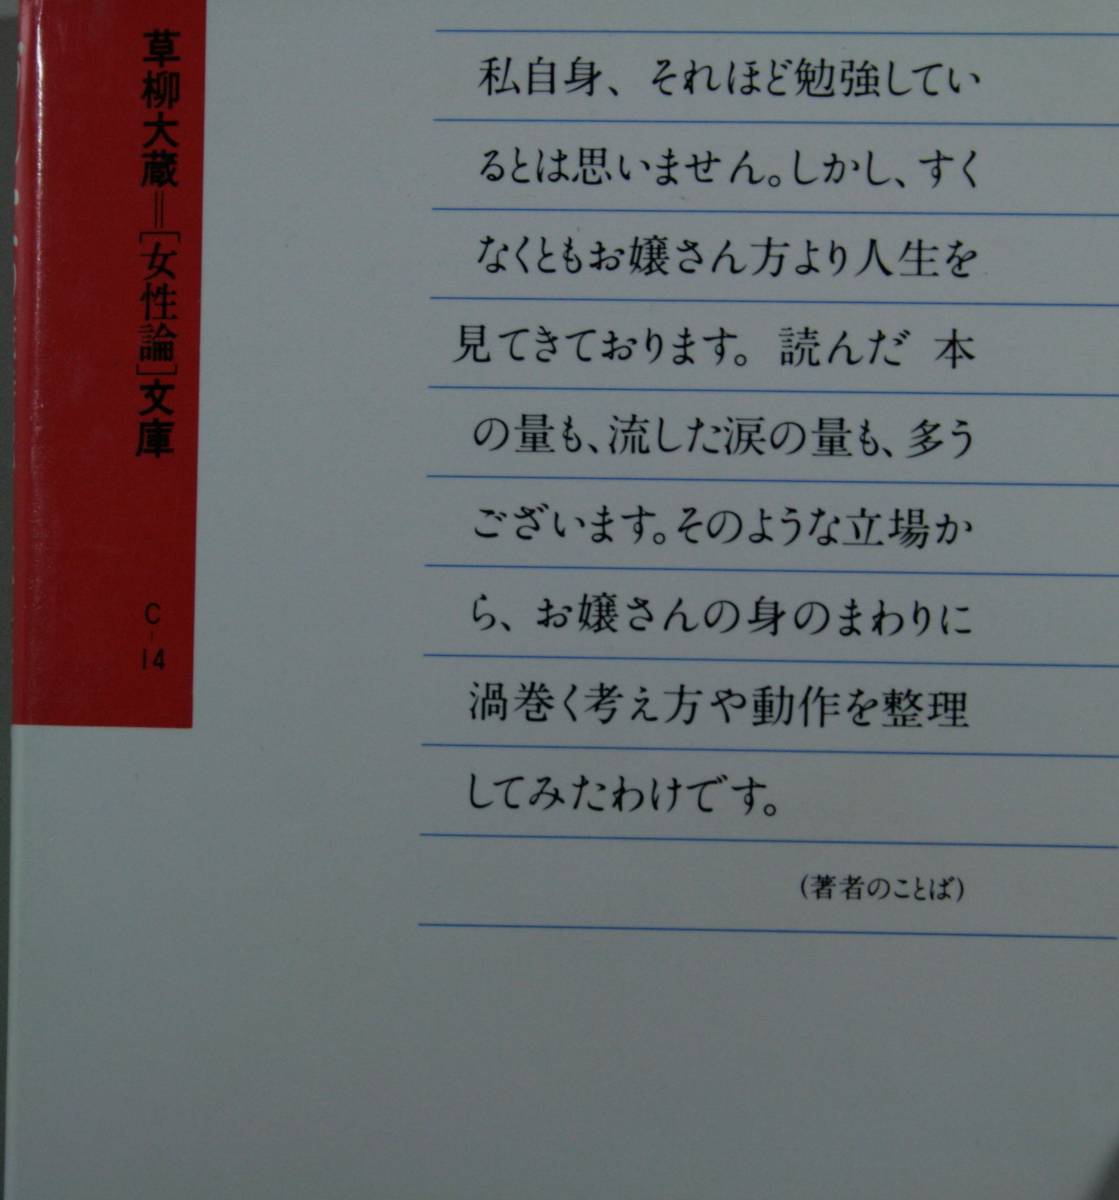 私自身、それほど勉強してい
るとは思いません。しかし、すく
なくともお嬢さん方より人生を
見てきております。読んだ 本
の量も、流した涙の量も、多う
ございます。そのような立場か
ら、お嬢さんの身のまわりに
渦巻く考え方や動作を整理
してみたわけです。
(著者のことば)
草柳大蔵=[女性論]文庫
C-14